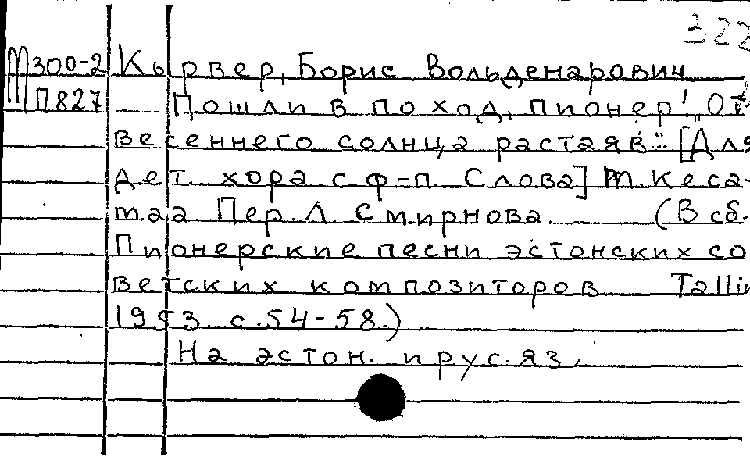 322
М300-2 Кырвер, Борис Вольдемарович
П827 Пошли в поход, пионер! „От
весеннего солнца растаяв..." [Для
дет. хора с ф-п. Слова] М. Кеса-
маа Пер. Л Смирнова. (В сб.
Пионерские песни эстонских со
ветских композиторов Tallin
1953 с. 54-58.)
На эстон. и рус. яз.